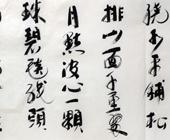 繞水平鋪松
排山面千重翠
月點波心一顆
珠碧毯綫頭